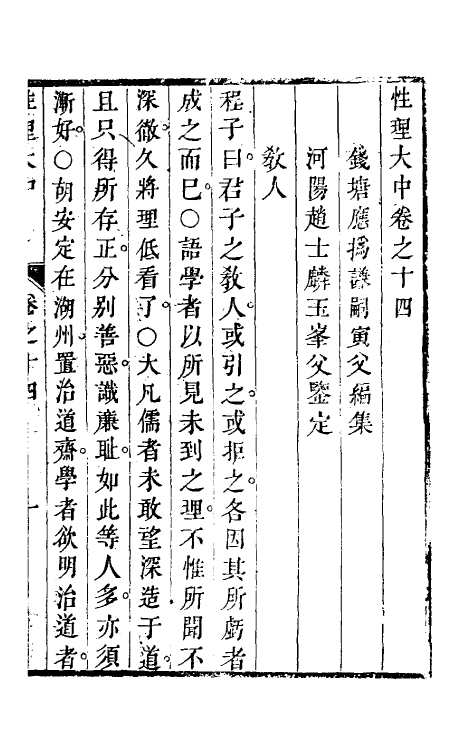 性理大中卷之十四
錢塘應撝謙嗣寅父編集
河陽趙士麟玉峯父鑒定
教人
程子曰君子之教人或引之或拒之各因其所虧者
成之而已○語學者以所見未到之理不惟所聞不
深徹久將理低看了○大凡儒者未敢望深造于道
且只得所存正分別善惡識廉耻如此等人多亦須
漸好○胡安定在湖州置治道齋學者欲明治道者
性理大中
卷之十四
一